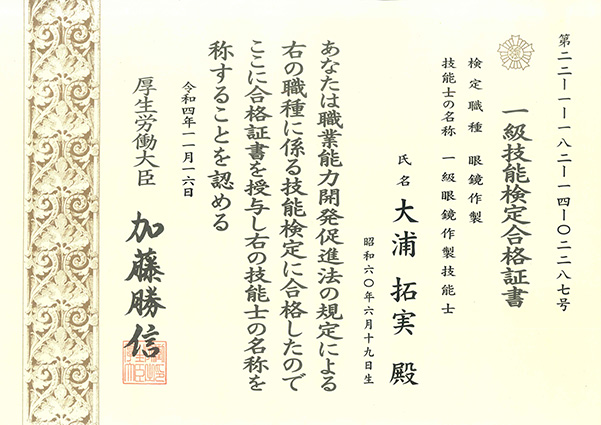 第二二ー一ー一八二ー一四ー〇二二八七号
一級技能検定合格証書
検定職種 眼鏡作製
技能士の名称 一級眼鏡作製技能士
氏名 大浦 拓実 殿
昭和六〇年六月十九日生
あなたは職業能力開発促進法の規定による
右の職種に係る技能検定に合格したので
ここに合格証書を授与し右の技能士の名称を
称することを認める
令和四年一一月一六日
厚生労働大臣 加藤勝信